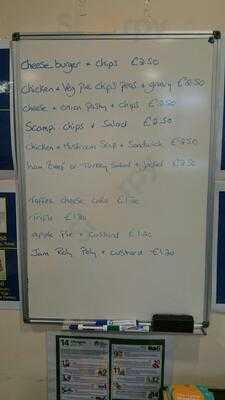 Cheese burger + chips £2.50
Chicken + Veg pie chips peas + gravy £2.50
cheese + onion pasty + chips £2.50
Scampi chips + Salad £2.50
Chicken + Mushroom Soup + Sandwich £2.50
ham Beef or Turkey Salad + Jacket £2.50
toffee cheese cake £1.20
trifle £1.20
apple Pie + Custard £1.20
Jam Roly Poly + custard £1.20
14